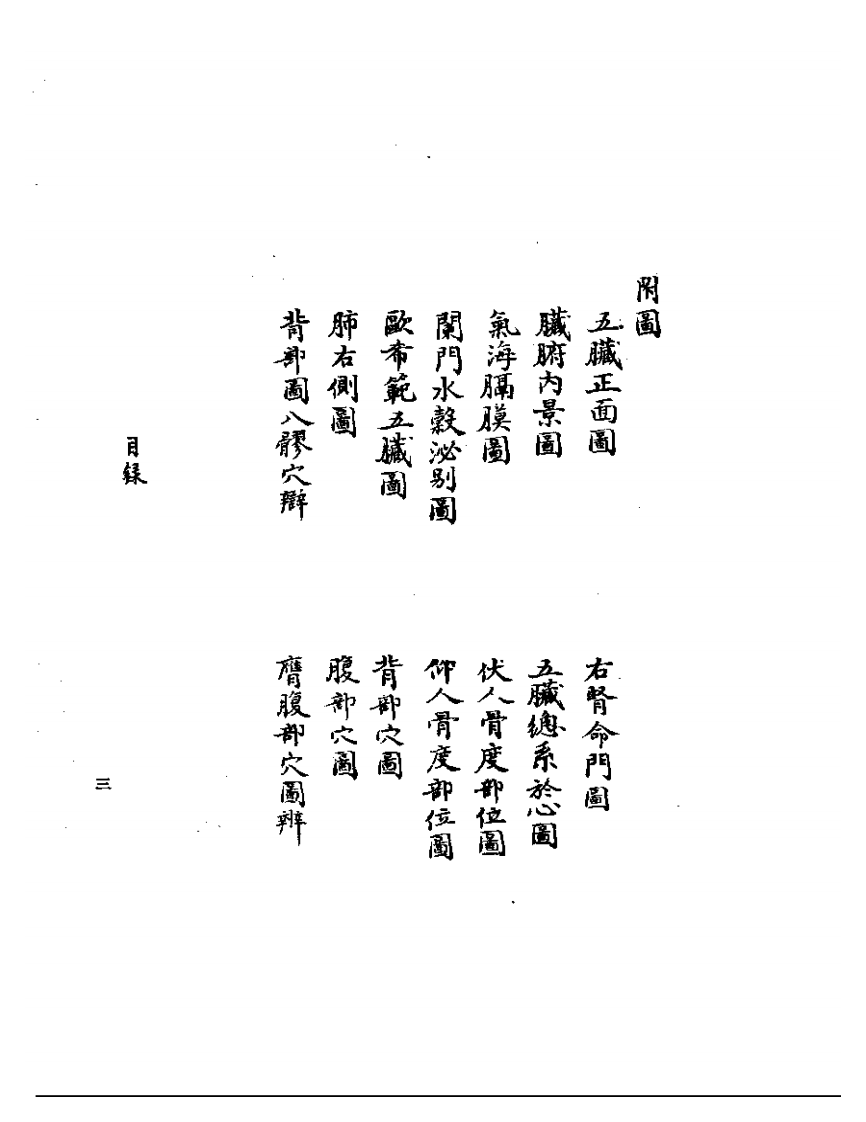 附圖
五臟正面圖
右腎命門圖
臟腑内景圖
五臟總系於心圖
氣海膈膜圖
伏人骨度部位圖
闌門水穀泌别圖
仰人骨度部位圖
歐希範五臟圖
背部穴圖
肺右側圖
腹部穴圖
背部圖八髎穴辯
膺腹部穴圖辨
目録
三